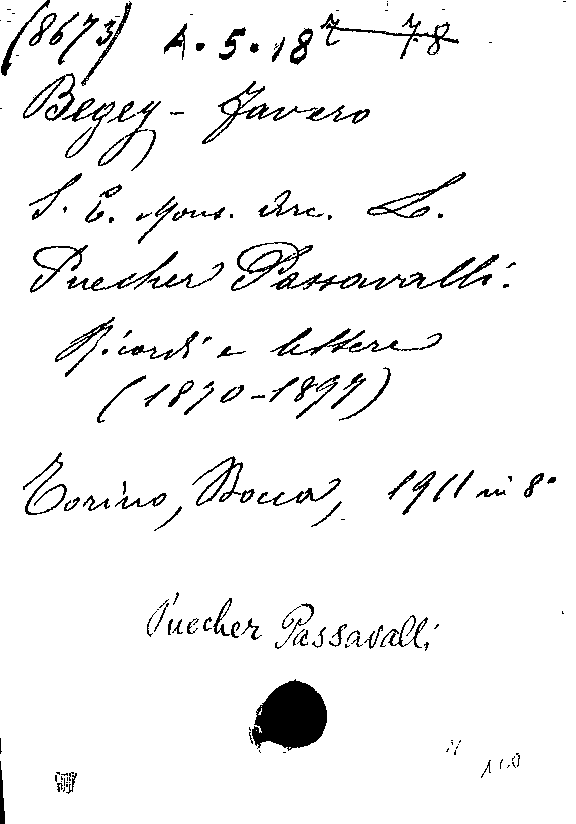 (8673) A. 5. 18
Begey - Favero
S. E. Mons. Arc. L.
Puecher Passavalli.
Ricordi e lettere
(1870-1897)
Torino, Bocca, 1911 in 8°
Puecher Passavalli